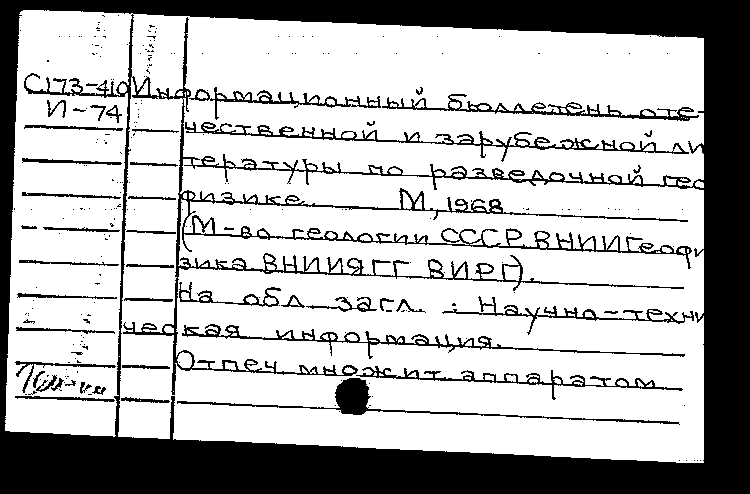 С173-410 Информационный бюллетень оте-
И-74 чественной и зарубежной ли
тературы по разведочной гео
физике М, 1968
(М-во геологии СССР. ВНИИГеофи
зика ВНИИЯГГ ВИРГ).
На обл. загл. : Научно-техни
ческая информация.
Отпеч. множит. аппаратом